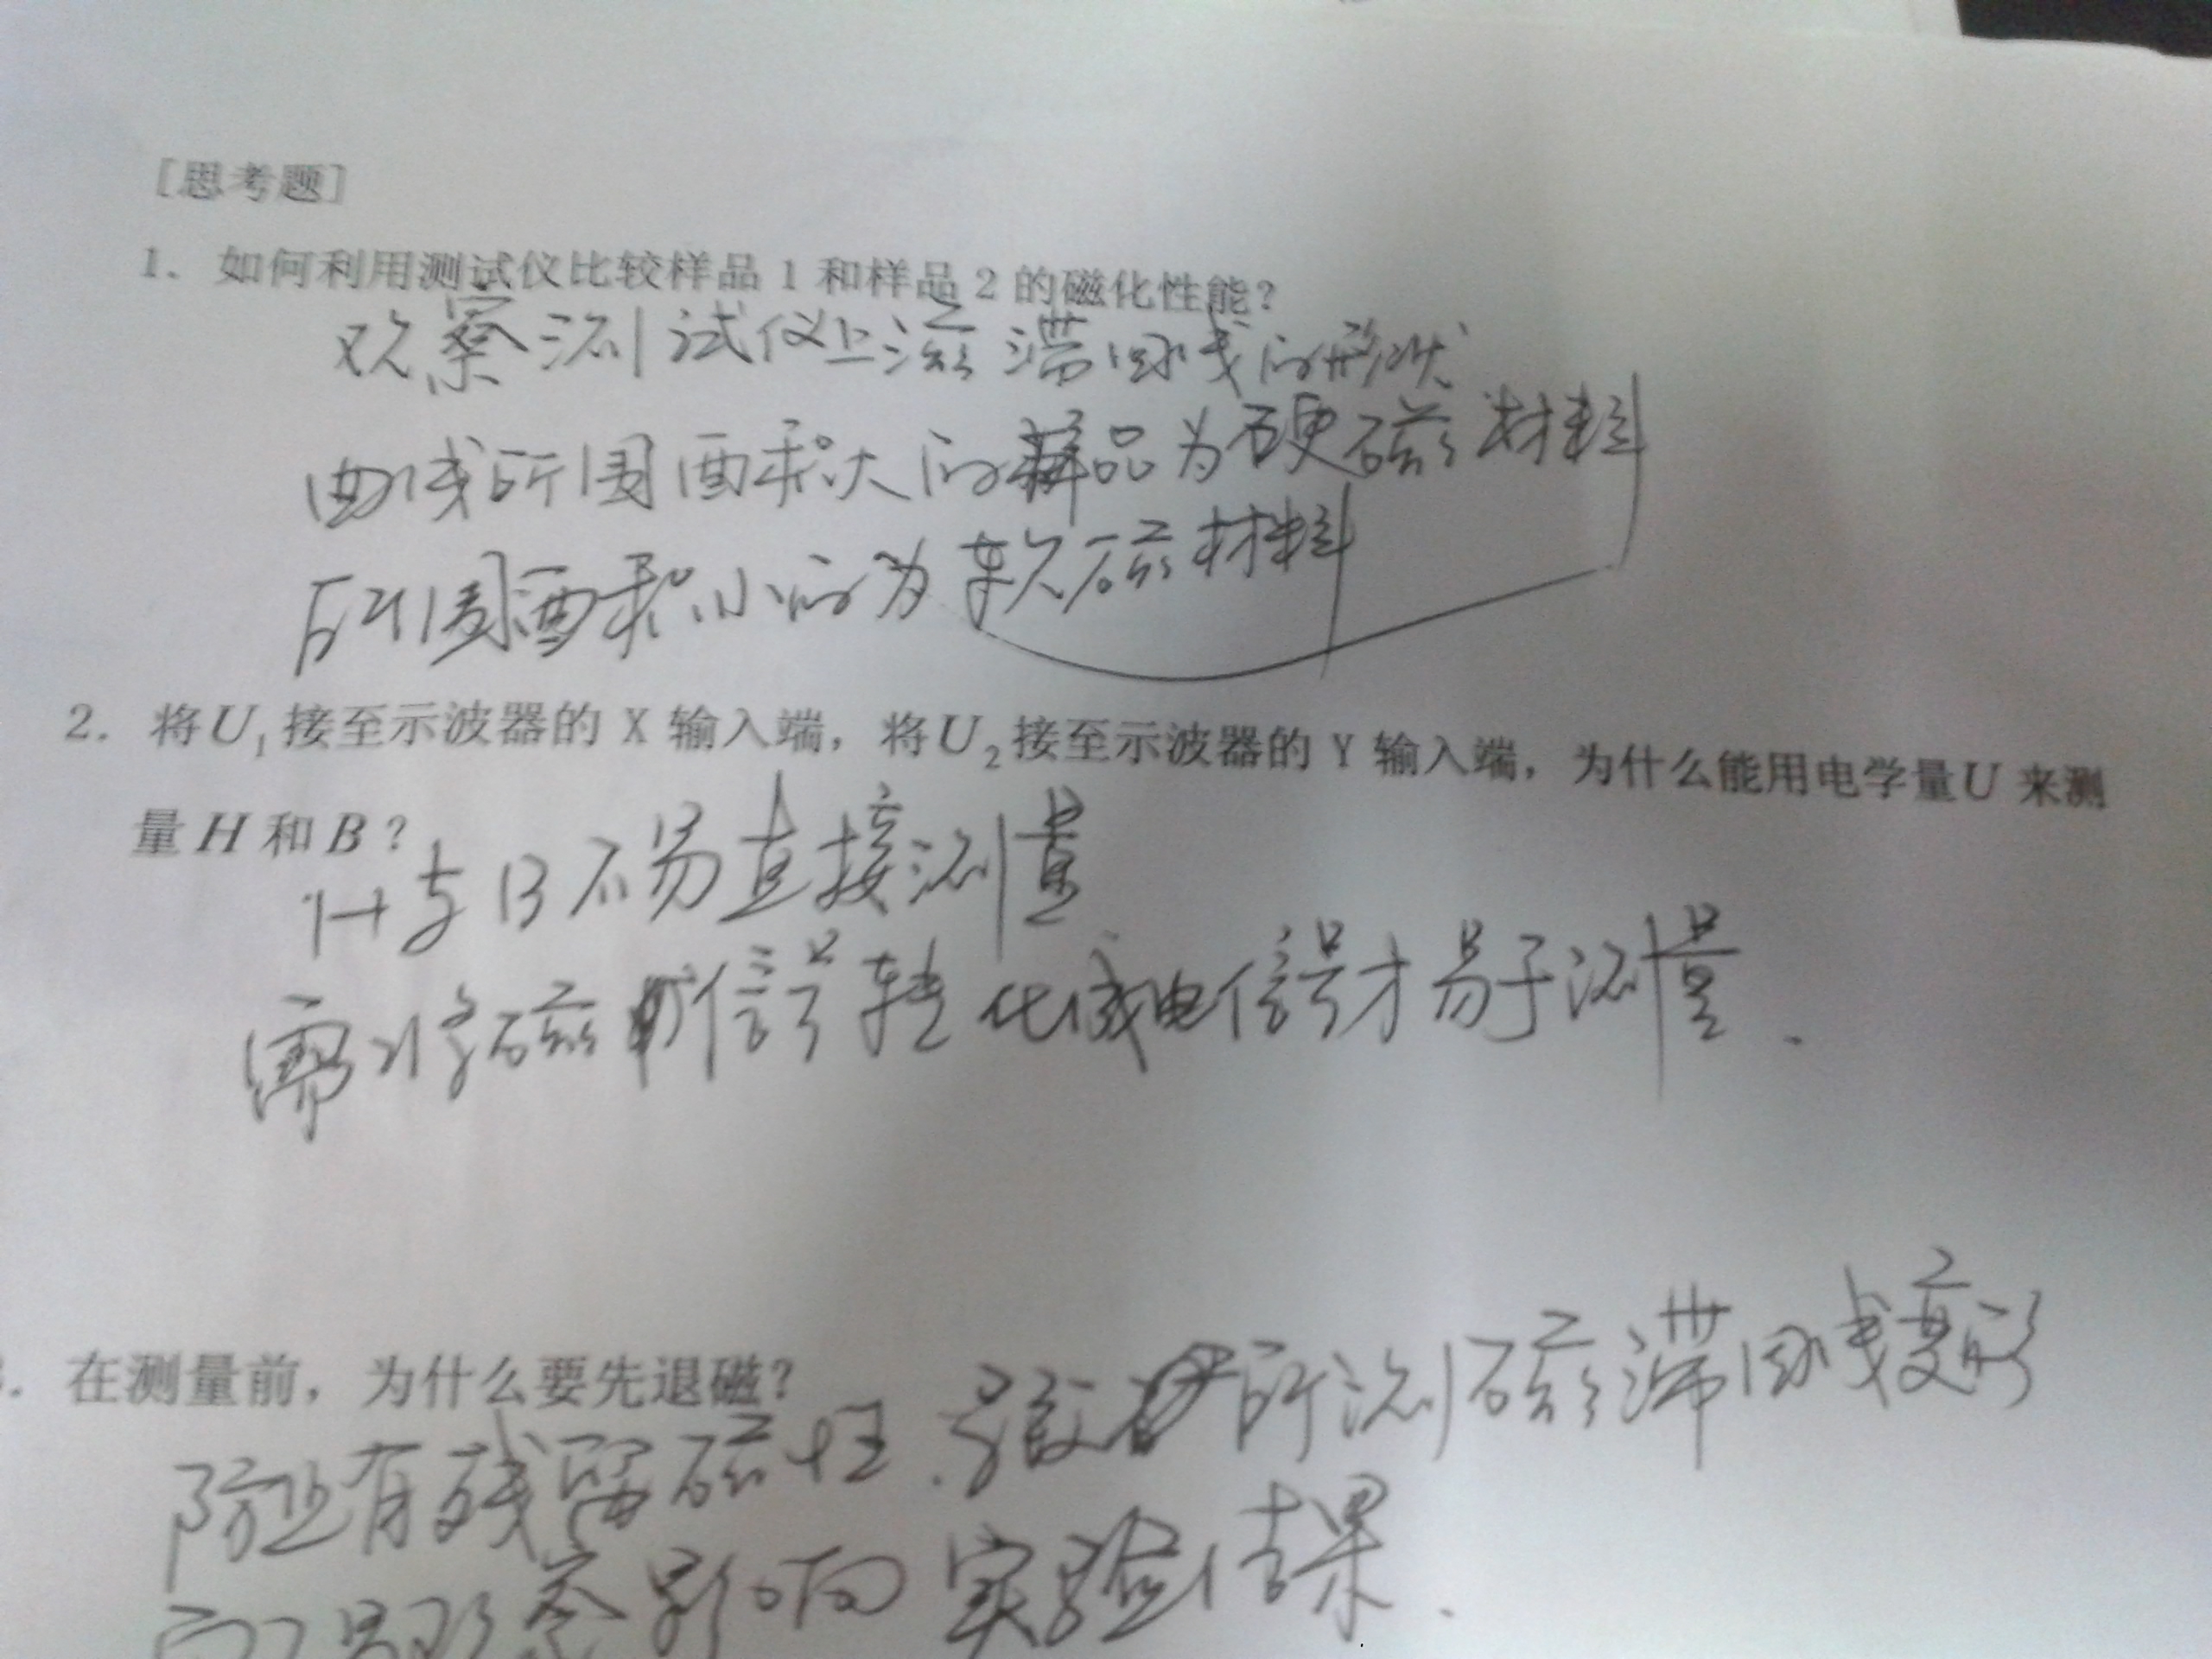 [思考题]
1. 如何利用测试仪比较样品1和样品2的磁化性能?
观察测试仪上磁滞回线的形状
曲线所围面积大的样品为硬磁材料
所围面积小的为软磁材料
2. 将U₁接至示波器的 X 输入端，将U₂接至示波器的 Y 输入端，为什么能用电学量U 来测
量 H 和 B ?
H与B不易直接测量
需将磁信号转化成电信号才易于测量.
. 在测量前，为什么要先退磁?
防止有残留磁性.导致所测磁滞回线变形
影响实验结果.